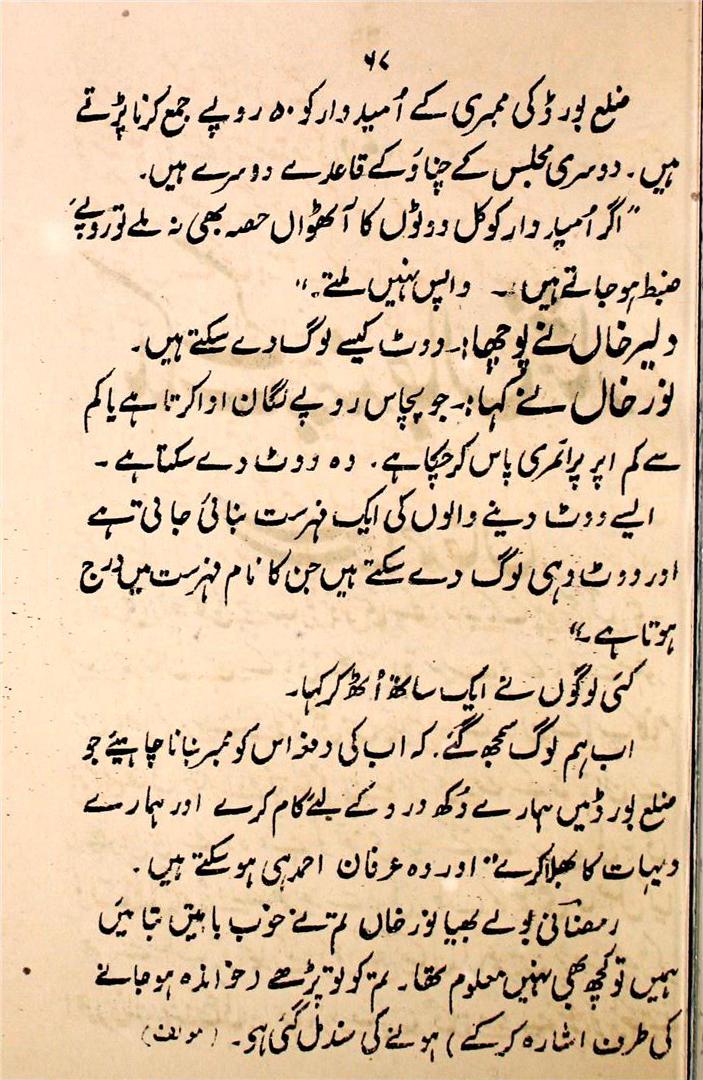 ۶۷
ضلع بورڈ کی ممبری کے اُمیدوار کو ۵۰ روپے جمع کرنا پڑتے
ہیں۔ دوسری مجلس کے چناؤ کے قاعدے دوسرے ہیں۔
"اگر اُمیدوار کو کل ووٹوں کا آٹھواں حصہ بھی نہ ملے تو روپے
ضبط ہو جاتے ہیں۔ واپس نہیں ملتے۔"
دلیر خاں نے پوچھا:۔ ووٹ کیسے لوگ دے سکتے ہیں۔
نور خاں نے کہا:۔ جو پچاس روپے لگان ادا کرتا ہے یا کم
سے کم اپر پرائمری پاس کر چکا ہے۔ وہ ووٹ دے سکتا ہے۔
ایسے ووٹ دینے والوں کی ایک فہرست بنائی جاتی ہے
اور ووٹ وہی لوگ دے سکتے ہیں جن کا نام فہرست میں درج
ہوتا ہے۔"
کئی لوگوں نے ایک ساتھ اُٹھ کر کہا۔
اب ہم لوگ سمجھ گئے۔ کہ اب کی دفعہ اس کو ممبر بنانا چاہیئے جو
ضلع بورڈ میں ہمارے دُکھ درد کے لئے کام کرے اور ہمارے
دیہات کا بھلا کرے" اور وہ عرفان احمد ہی ہو سکتے ہیں۔
رمضانی بولے بھیا نور خاں تم نے خوب باتیں بتائیں
ہمیں تو کچھ بھی نہیں معلوم تھا۔ تم کو تو پڑھے (خواندہ ہو جانے
کی طرف اشارہ کر کے) ہونے کی سند مل گئی ہی۔ (مولف)